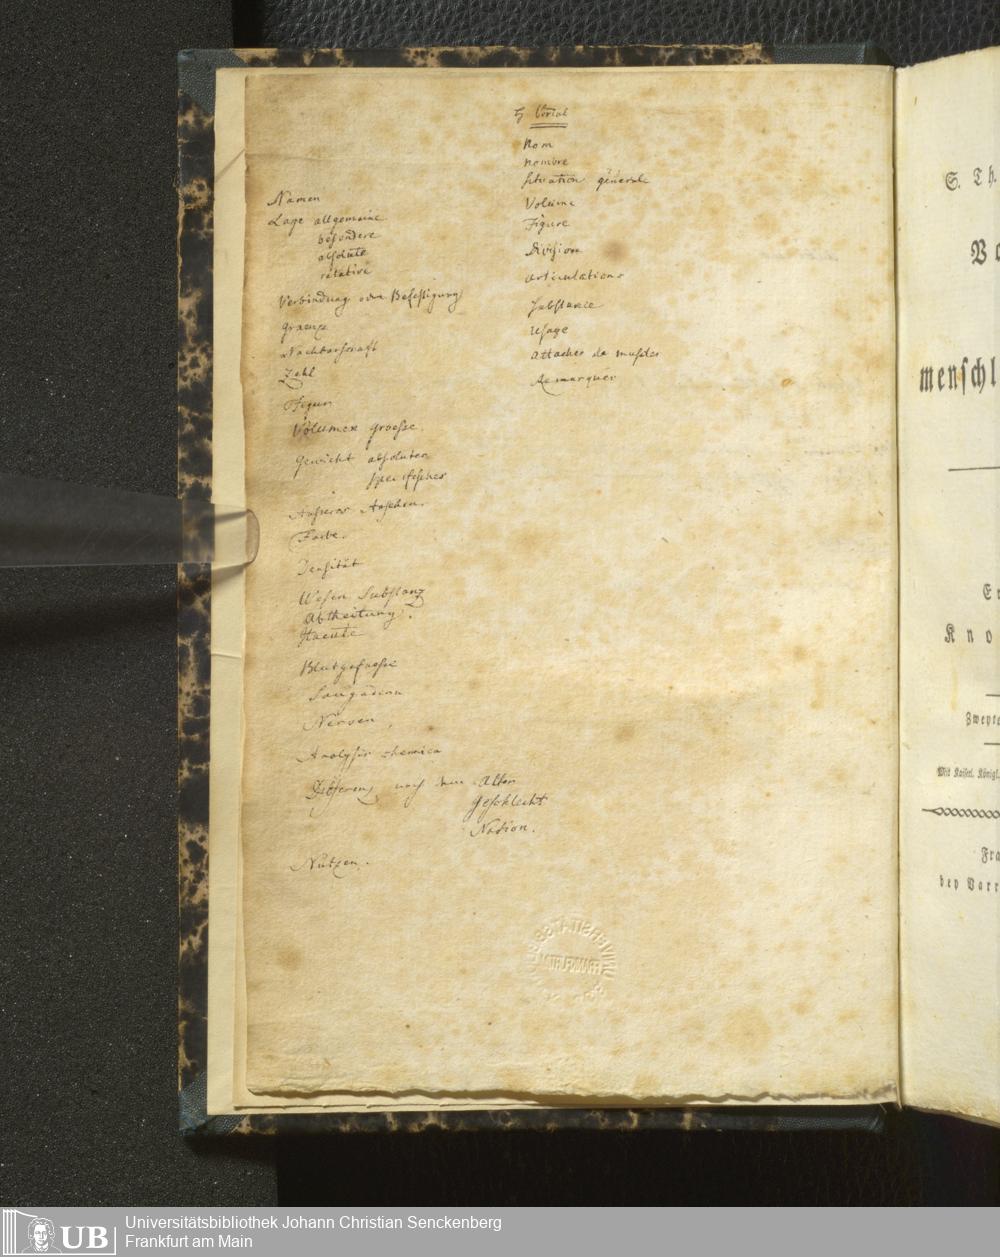 Namen
Lage allgemeine
besondere
absolute
relative
Verbindung oder Befestigung
Graenze
Nachbarschaft
Zahl
Figur
Volumen groesse.
Gewicht absolutes
specifisches
Aeusseres Ansehen.
Farbe.
Densität
Wesen Substanz
Abtheilung.
Haeute
Blutgefaesse
Saugadern
Nerven,
Analysis chemica
Differenz nach dem Alter
Geschlecht
Nation.
Nutzen.
Portal
Nom
Nombre
Situation générale
Volume
Figure
Division
Articulations
Substance
Usage
Attaches de muscles
Remarques
UNIVERSITÄTSBIBL
FRANKFURT
S. Th.
Vo
menſchl
Kno
Zweyte
Mit Kaiſerl. Königl.
Fra
bey Varr
UB
Universitätsbibliothek Johann Christian Senckenberg
Frankfurt am Main